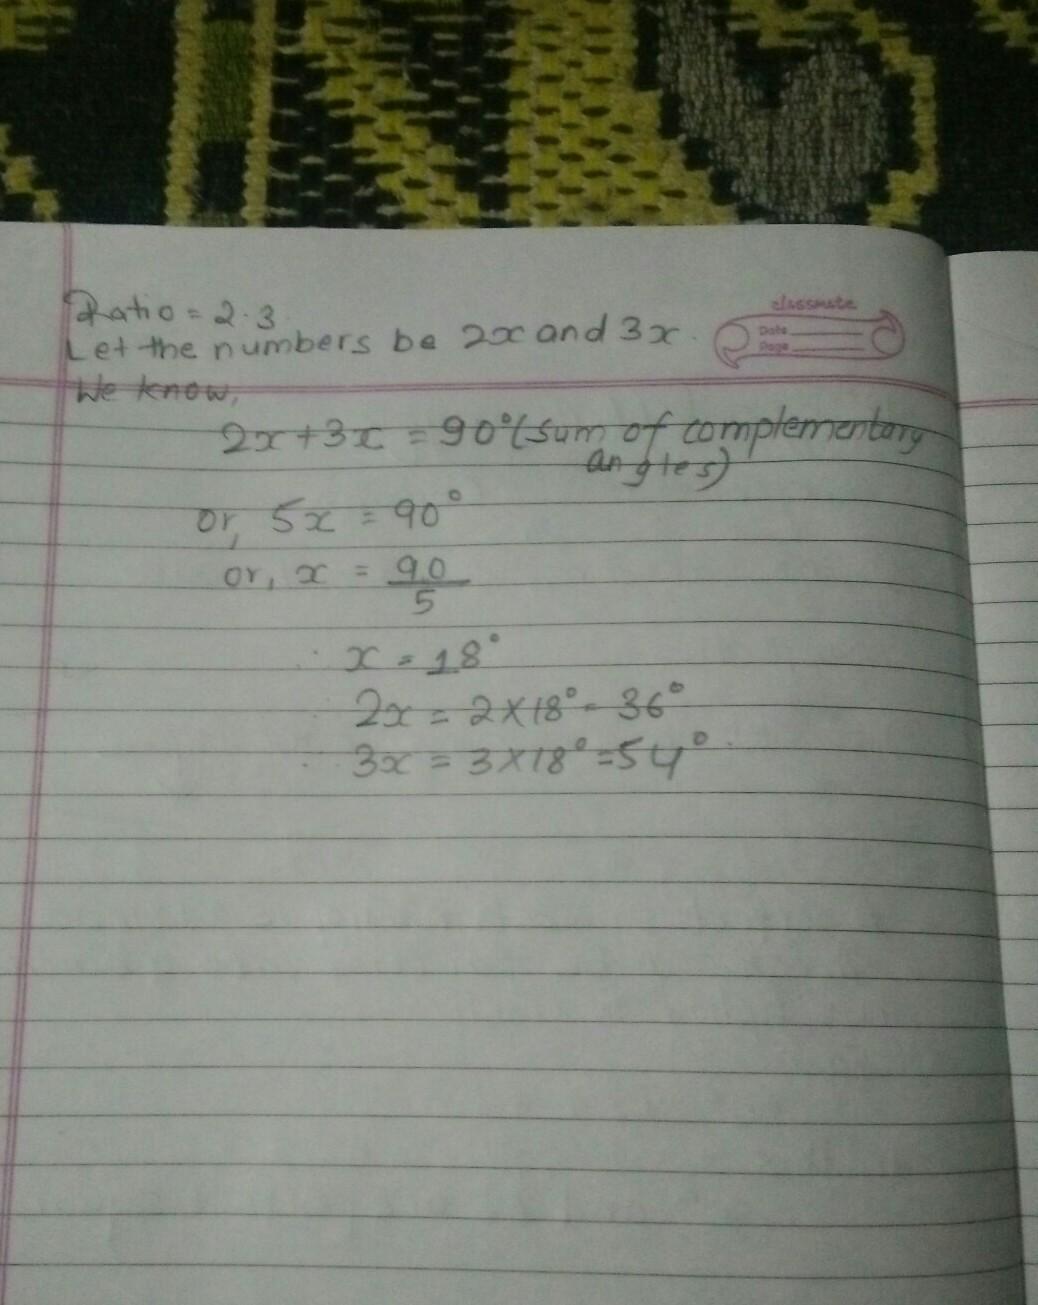 Ratio = 2:3
classmate
Date
Page
Let the numbers be 2x and 3x.
We know,
2x + 3x = 90° (sum of complementary
angles)
or, 5x = 90°
or, x = 90/5
∴ x = 18°
∴ 2x = 2×18° = 36°
∴ 3x = 3×18° = 54°.